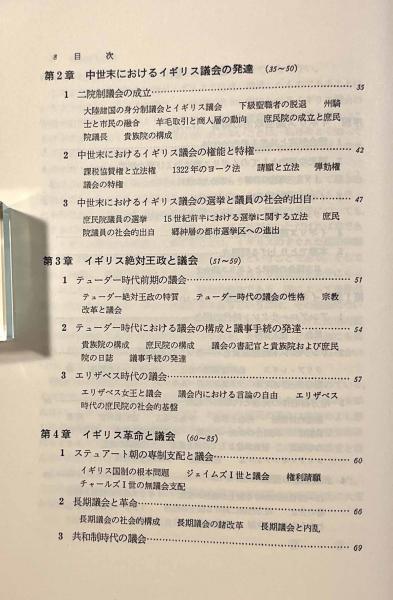 8 目次
第2章 中世末におけるイギリス議会の発達 (35〜50)
1 二院制議会の成立……35
大陸諸国の身分制議会とイギリス議会 下級聖職者の脱退 州騎
士と市民の融合 羊毛取引と商人層の動向 庶民院の成立と庶民
院議長 貴族院の構成
2 中世末におけるイギリス議会の権能と特権……42
課税協賛権と立法権 1322年のヨーク法 請願と立法 弾劾権
議会の特権
3 中世末におけるイギリス議会の選挙と議員の社会的出自……47
庶民院議員の選挙 15世紀前半における選挙に関する立法 庶民
院議員の社会的出自 郷紳層の都市選挙区への進出
第3章 イギリス絶対王政と議会 (51〜59)
1 テューダー時代前期の議会……51
テューダー絶対王政の特質 テューダー時代の議会の性格 宗教
改革と議会
2 テューダー時代における議会の構成と議事手続の発達……54
貴族院の構成 庶民院の構成 議会の書記官と貴族院および庶民
院の日誌 議事手続の発達
3 エリザベス時代の議会……57
エリザベス女王と議会 議会内における言論の自由 エリザベス
時代の庶民院の社会的基盤
第4章 イギリス革命と議会 (60〜85)
1 ステュアート朝の専制支配と議会……60
イギリス国制の根本問題 ジェイムズI世と議会 権利請願
チャールズI世の無議会支配
2 長期議会と革命……66
長期議会の社会的構成 長期議会の諸改革 長期議会と内乱
3 共和制時代の議会……69